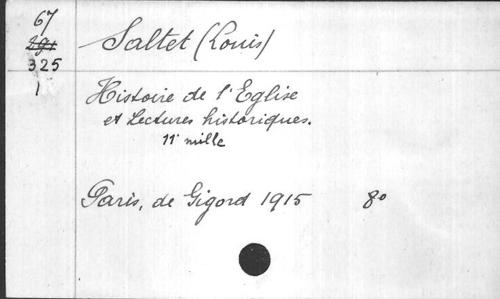 67
291
325
1
Saltet (Louis)
Histoire de l'Eglise
et Lectures historiques.
11e mille
Paris, de Gigord 1915 8o